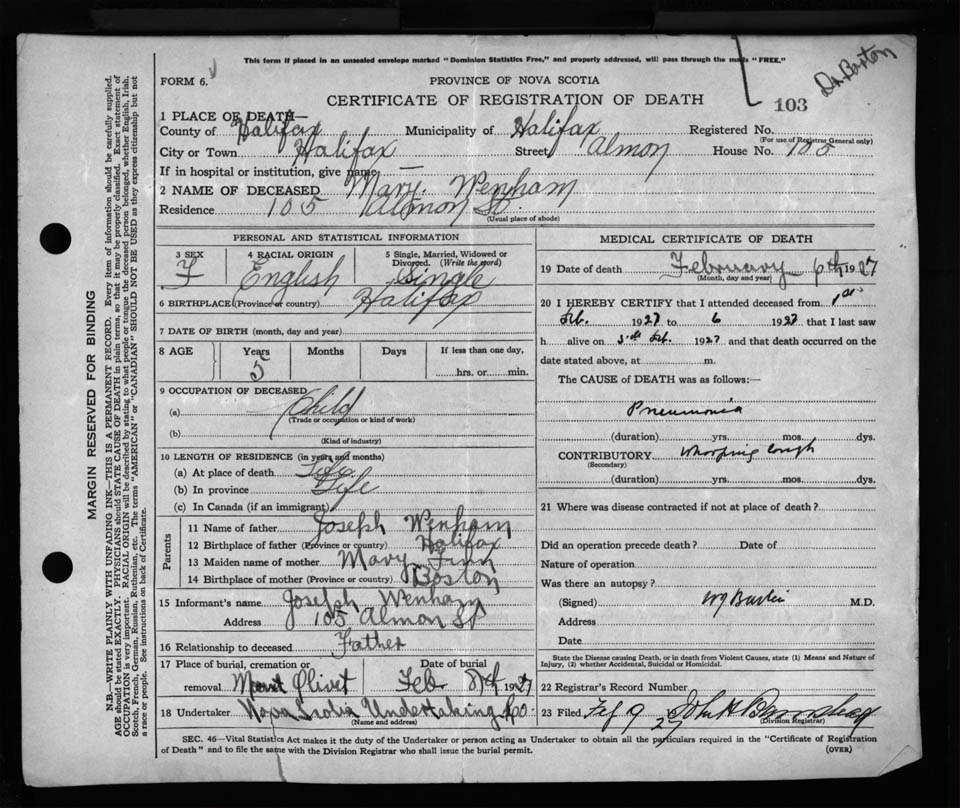 This form if placed in an unsealed envelope marked "Dominion Statistics Free," and properly addressed, will pass through the mails "FREE."
Dr. Barton
FORM 6.
PROVINCE OF NOVA SCOTIA
CERTIFICATE OF REGISTRATION OF DEATH
103
1 PLACE OF DEATH—
County of Halifax Municipality of Halifax Registered No.
(For use of Registrar General only)
City or Town Halifax Street Almon House No. 105
If in hospital or institution, give name —
2 NAME OF DECEASED Mary Wenham
Residence 105 Almon St.
(Usual place of abode)
PERSONAL AND STATISTICAL INFORMATION
3 SEX F
4 RACIAL ORIGIN English
5 Single, Married, Widowed or Divorced. (Write the word) Single
6 BIRTHPLACE (Province or country) Halifax
7 DATE OF BIRTH (month, day and year)
8 AGE Years Months Days If less than one day,
5 hrs. or min.
9 OCCUPATION OF DECEASED
(a) Child
(Trade or occupation or kind of work)
(b)
(Kind of industry)
10 LENGTH OF RESIDENCE (in years and months)
(a) At place of death Life
(b) In province Life
(c) In Canada (if an immigrant)
Parents
11 Name of father Joseph Wenham
12 Birthplace of father (Province or country) Halifax
13 Maiden name of mother Mary
14 Birthplace of mother (Province or country) Boston
15 Informant's name Joseph Wenham
Address 105 Almon St
16 Relationship to deceased Father
17 Place of burial, cremation or Date of burial
removal Mount Olivet Feb 8th 1927
18 Undertaker Nova Scotia Undertaking Co.
(Name and address)
MEDICAL CERTIFICATE OF DEATH
19 Date of death February 6th 1927
(Month, day and year)
20 I HEREBY CERTIFY that I attended deceased from 1st
Feb. 1927 to 6 1927 that I last saw
h alive on 5th Feb. 1927 and that death occurred on the
date stated above, at m.
The CAUSE of DEATH was as follows:—
Pneumonia
(duration) yrs. mos. dys.
CONTRIBUTORY Whooping Cough
(Secondary)
(duration) yrs. mos. dys.
21 Where was disease contracted if not at place of death?
Did an operation precede death? Date of
Nature of operation
Was there an autopsy?
(Signed) M.D.
Address
Date
State the Disease causing Death, or in death from Violent Causes, state (1) Means and Nature of
Injury, (2) whether Accidental, Suicidal or Homicidal.
22 Registrar's Record Number
23 Filed Feb 9 27 John H
(Division Registrar)
SEC. 46—Vital Statistics Act makes it the duty of the Undertaker or person acting as Undertaker to obtain all the particulars required in the "Certificate of Registration
of Death" and to file the same with the Division Registrar who shall issue the burial permit.
(OVER)
MARGIN RESERVED FOR BINDING
N.B.—WRITE PLAINLY WITH UNFADING INK—THIS IS A PERMANENT RECORD. Every item of information should be carefully supplied.
AGE should be stated EXACTLY. PHYSICIANS should STATE CAUSE OF DEATH in plain terms, so that it may be properly classified. Exact statement of
OCCUPATION is very important. RACIAL ORIGIN will be described by stating to what people or tongue the deceased person belonged, whether English, Irish,
Scotch, French, German, Russian, Ruthenian, etc. The terms "AMERICAN" or "CANADIAN" SHOULD NOT BE USED as they express citizenship but not
a race or people. See instructions on back of Certificate.